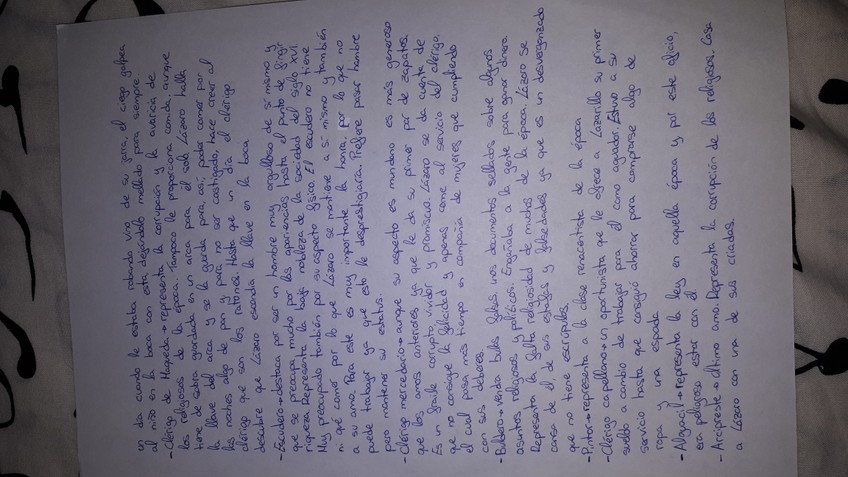 un día cuando le estaba robando vino de su jarra, el ciego golpea
al niño en la boca con esta, dejándolo mellado para siempre
- Clérigo de Maqueda → representa la corrupción y la avaricia de
los religiosos de la época. Tampoco le proporciona comida, aunque
tiene de sobra guardada en un arca para él solo. Lázaro halla
la llave del arca y se la guarda para, así, poder comer por
las noches algo de pan y para no ser castigado, hace creer al
clérigo que son los ratones. Hasta que un día el clérigo
descubre que Lázaro escondía la llave en la boca.
- Escudero → destaca por ser un hombre muy orgulloso de sí mismo y
que se preocupa mucho por las apariencias hasta el punto de fingir
riqueza. Representa la baja nobleza de la sociedad del siglo XVI.
Muy preocupado también por su aspecto físico. El escudero no tiene
ni qué comer por lo que Lázaro se mantiene a sí mismo y también
a su amo. Para este es muy importante la honra, por lo que no
puede trabajar ya que esto le desprestigiaría. Prefiere pasar hambre
para mantener su estatus.
- Clérigo mercedario → aunque su aspecto es mundano es más generoso
que los amos anteriores ya que le da su primer par de zapatos.
Es un fraile corrupto, vividor y promiscuo. Lázaro se da cuenta de
que no consigue la felicidad y apenas come al servicio del clérigo,
el cual pasa más tiempo en compañía de mujeres que cumpliendo
con sus deberes.
- Buldero → vendía bulas falsas, unos documentos sellados sobre algunos
asuntos religiosos y políticos. Engañaba a la gente para ganar dinero.
Representa la falsa religiosidad de muchos de la época. Lázaro se
cansa de él de sus estafas y falsedades ya que es un desvergonzado
que no tiene escrúpulos.
- Pintor → representa a la clase renacentista de la época
- Clérigo capellano → un oportunista que le ofrece a Lazarillo su primer
sueldo a cambio de trabajar para él como aguador. Estuvo a su
servicio hasta que consiguió ahorrar para comprarse algo de
ropa y una espada
- Alguacil → representa la ley en aquella época y por este oficio,
era peligroso estar con él
- Arcipreste → último amo. Representa la corrupción de los religiosos. Casa
a Lázaro con una de sus criadas.